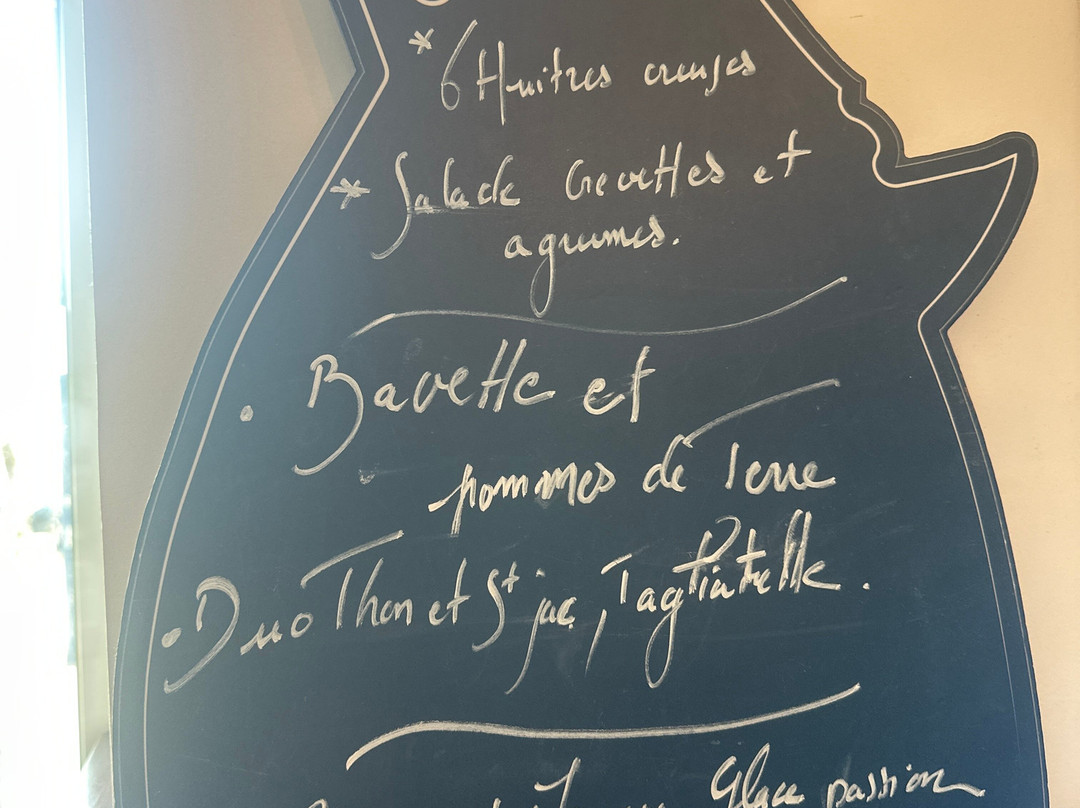 * 6 Huitres creuses
* Salade Crevettes et
agrumes.
• Bavette et
pommes de Terre
• Duo Thon et St jac, Tagliatelle.
Glace passion